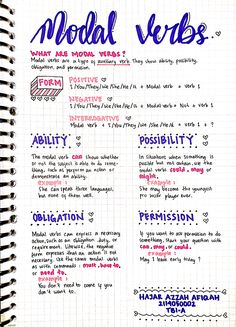 Modal Verbs.
WHAT ARE MODAL VERBS?
Modal verbs are a type of auxiliary verb. They show ability, possibility,
obligation, and permission.
FORM
POSITIVE
I /You /They / We /She /He /it + Modal verb + verb 1
NEGATIVE
I /You /They / We /She /He /it + Modal verb + Not + verb 1
INTERROGATIVE
Modal verb + I /You /They / We /She /He /it + verb 1
ABILITY
The modal verb can show whether
or not the subject is able to do some-
thing, such as perform an action or
demonstrate an ability.
Example :
She can speak three languages,
but none of them well.
POSSIBILITY
In situations when something is
possible but not certain, use the
modal verbs could, may or
might.
Example :
She may become the youngest
pro soccer player ever.
OBLIGATION
Modal verbs can express a necessary
action, such as an obligation, duty, or
requirement. Likewise, the negative
form expresses that an action is not
necessary. Use the same modal verbs
as with commands : must, have to,
or need to.
Example :
You don't need to come if you
don't want to.
PERMISSION
If you want to ask permission to do
something, start your question with
can, may, or could.
Example :
May I leave early today ?
HAJAR AZZAH AFIQAH
2119050002
TBI-A